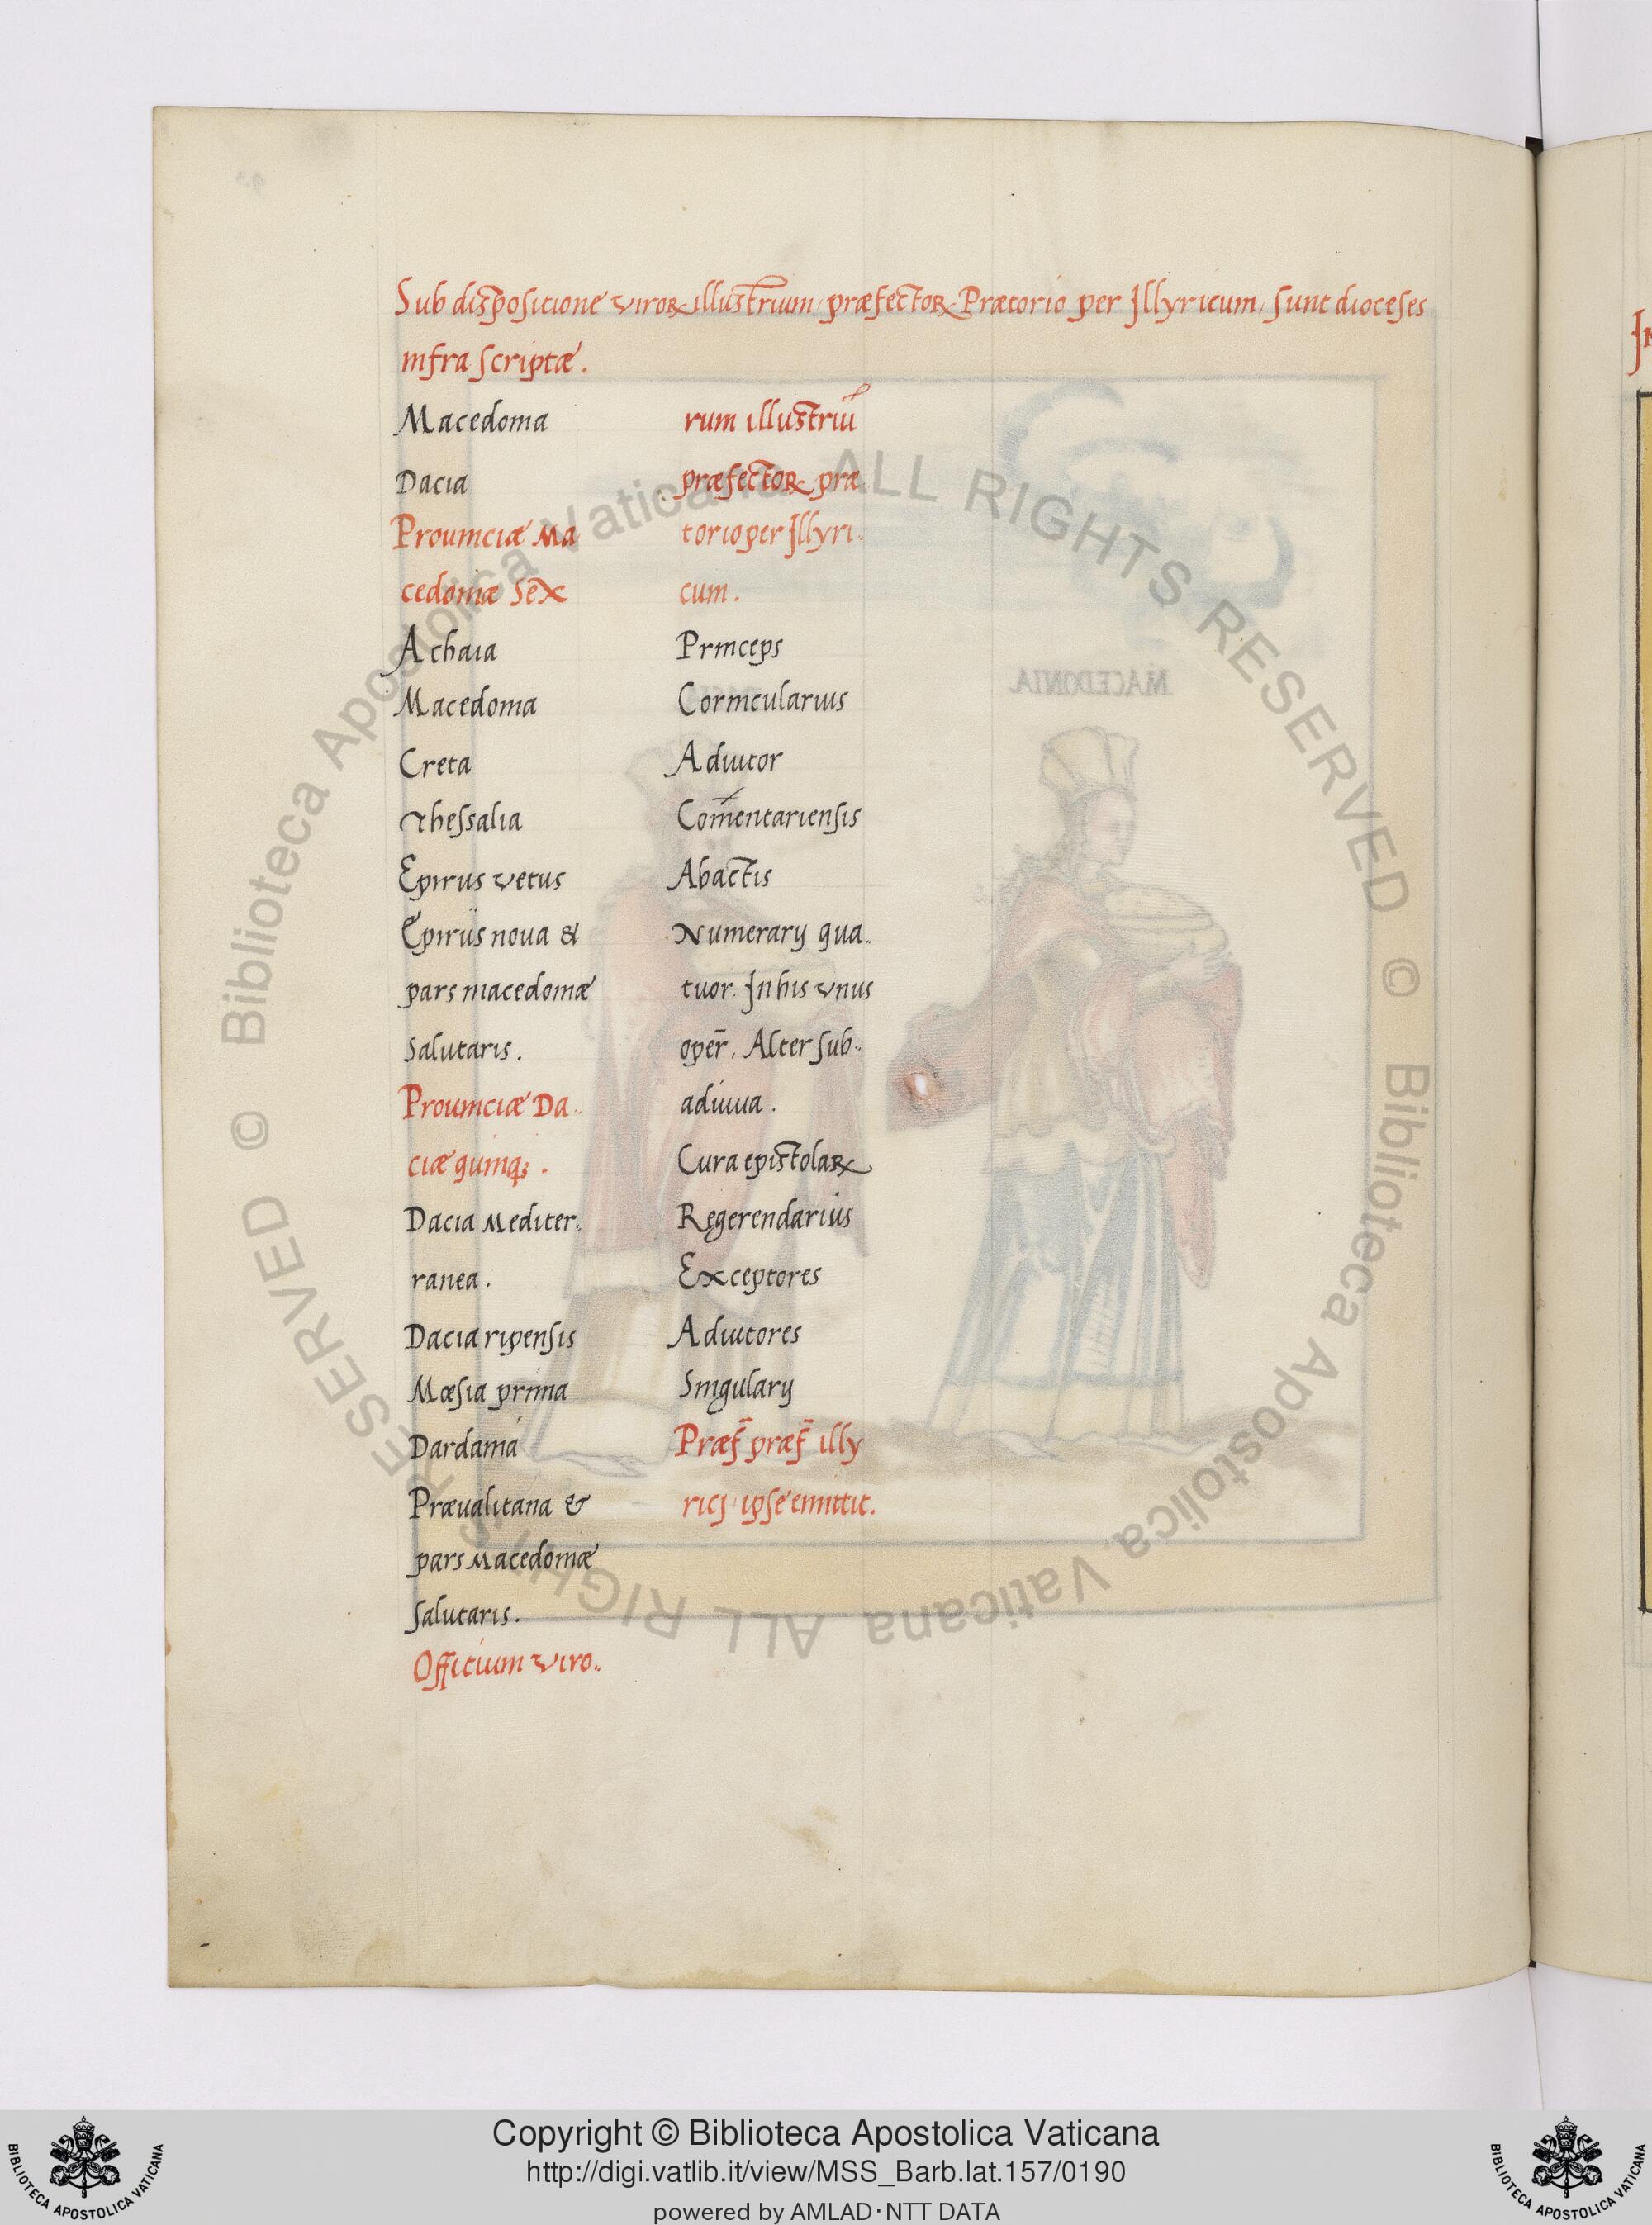 Sub dispositione viroꝝ illustrium, præfectoꝝ Prætorio per Illyricum, sunt dioceses
infra scriptæ.
Macedonia
Dacia
Prouinciæ Ma
cedoniæ Sex
Achaia
Macedonia
Creta
Thessalia
Epirus vetus
Epirus noua &
pars macedoniæ
Salutaris.
Prouinciæ Da..
ciæ quinqꝫ.
Dacia Mediter..
ranea.
Dacia ripensis
Mœsia prima
Dardania
Præualitana &
pars Macedoniæ
salutaris.
Officium viro..
rum illustriū
præfectoꝝ præ
torio per Illyri..
cum.
Princeps
Cornicularius
Adiutor
Com̄entariensis
Abactis
Numerarij qua..
tuor. In his vnus
oper̄. Alter sub..
adiuua.
Cura epistolaꝝ
Regerendarius
Exceptores
Adiutores
Singularij
Præf̄ præf̄ illy
rici, ipse emittit.
MACEDONIA
© Biblioteca Apostolica Vaticana ALL RIGHTS RESERVED © Biblioteca Apostolica Vaticana ALL RIGHTS RESERVED
Copyright © Biblioteca Apostolica Vaticana
http://digi.vatlib.it/view/MSS_Barb.lat.157/0190
powered by AMLAD·NTT DATA
BIBLIOTECA APOSTOLICA VATICANA
BIBLIOTECA APOSTOLICA VATICANA